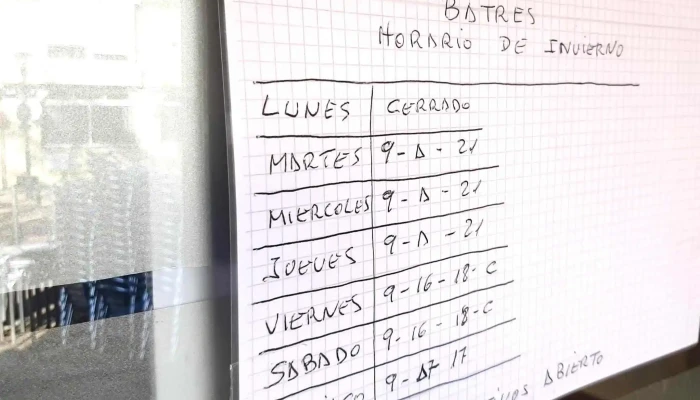 BATRES
HORARIO DE INVIERNO
LUNES CERRADO
MARTES 9 - A - 21
MIERCOLES 9 - A - 21
JUEVES 9 - A - 21
VIERNES 9 - 16 - 18 - C
SABADO 9 - 16 - 18 - C
9 - A7 17
ABIERTO